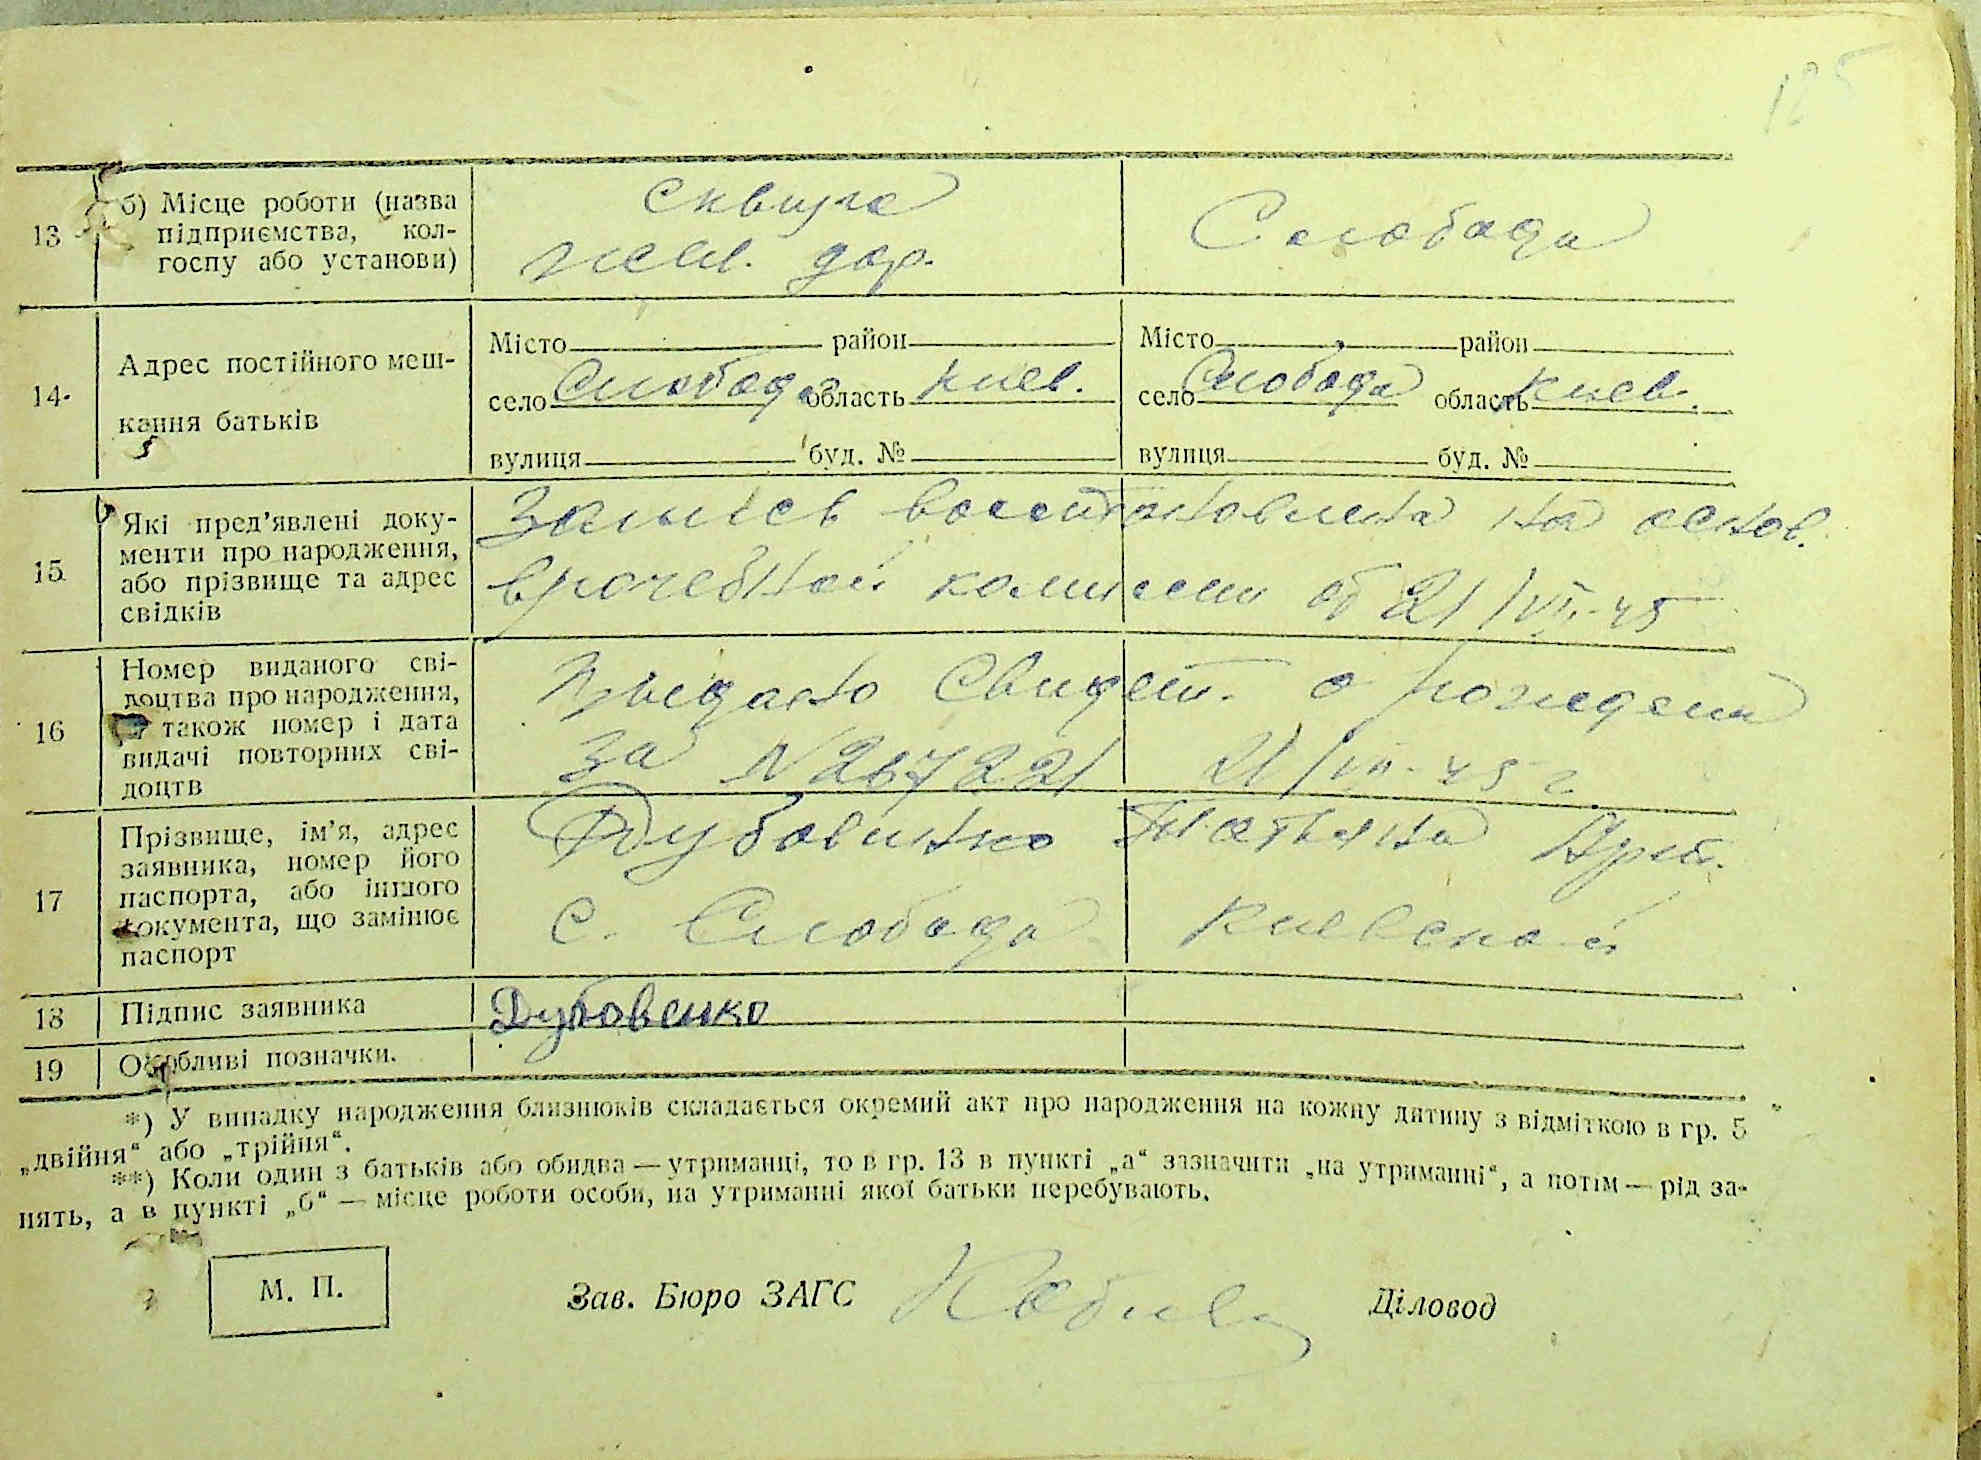 125
13
б) Місце роботи (назва
підприємства, кол-
госпу або установи)
Сквира
жел. дор.
Слобода
14.
Адрес постійного меш-
кання батьків
Місто район
село Слобода область Киев.
вулиця буд. №
Місто район
село Слобода область Киев.
вулиця буд. №
15
Які пред’явлені доку-
менти про народження,
або прізвище та адрес
свідків
Запись восстановлена на основ.
врочебной комиссии от 21/VII-45
16
Номер виданого сві-
доцтва про народження,
а також номер і дата
видачі повторних сві-
доцтв
Выдано Свидет. о рождени
за N 267221 21/VII-45 г.
17
Прізвище, ім’я, адрес
заявника, номер його
паспорта, або іншого
документа, що замінює
паспорт
Дубовинко Татьяна
с. Слобода Киевской
18
Підпис заявника
Дубовенко
19
Особливі позначки.
*) У випадку народження близнюків складається окремий акт про народження на кожну дитину з відміткою в гр. 5
„двійня“ або „трійня“.
**) Коли один з батьків або обидва — утриманці, то в гр. 13 в пункті „а“ зазначити „на утриманні“, а потім — рід за-
нять, а в пункті „б“ — місце роботи особи, на утриманні якої батьки перебувають.
М. П.
Зав. Бюро ЗАГС
Діловод